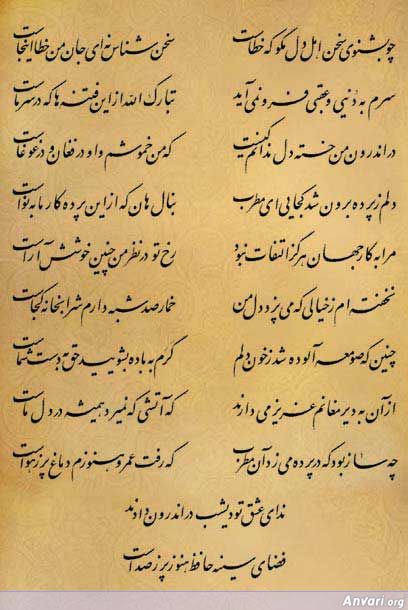 چو بشنوی سخن اهل دل مگو که خطاست سخن شناس نه ای جان من خطا اینجاست
سرم به دنیی و عقبی فرو نمی آید تبارک الله از این فتنه ها که در سر ماست
در اندرون من خسته دل ندانم کیست که من خموشم و او در فغان و در غوغاست
دلم ز پرده برون شد کجایی ای مطرب بنال هان که از این پرده کار ما به نواست
مرا به کار جهان هرگز التفات نبود رخ تو در نظر من چنین خوشش آراست
نخفته ام ز خیالی که می پزد دل من خمار صد شبه دارم شرابخانه کجاست
چنین که صومعه آلوده شد ز خون دلم گرم به باده بشویید حق به دست شماست
از آن به دیر مغانم عزیز می دارند که آتشی که نمیرد همیشه در دل ماست
چه ساز بود که در پرده می زد آن مطرب که رفت عمر و هنوزم دماغ پر ز هواست
ندای عشق تو دیشب در اندرون دادند
فضای سینه حافظ هنوز پر ز صداست
Anvari.org